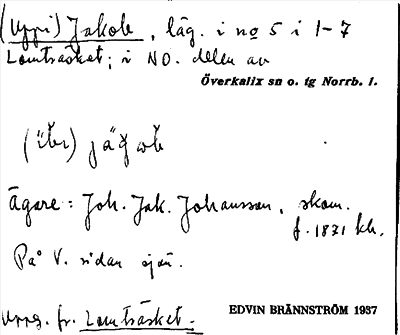 (Uppi) Jakob, läg. i no 5 i 1-7
Lomträsket; i NO. delen av
Överkalix sn o. tg Norrb. l.
Ägare: Joh. Jak. Johansson,
f. 1831 kh.
På V. sidan sjön.
Upps. fr. Lomträsket.
EDVIN BRÄNNSTRÖM 1937